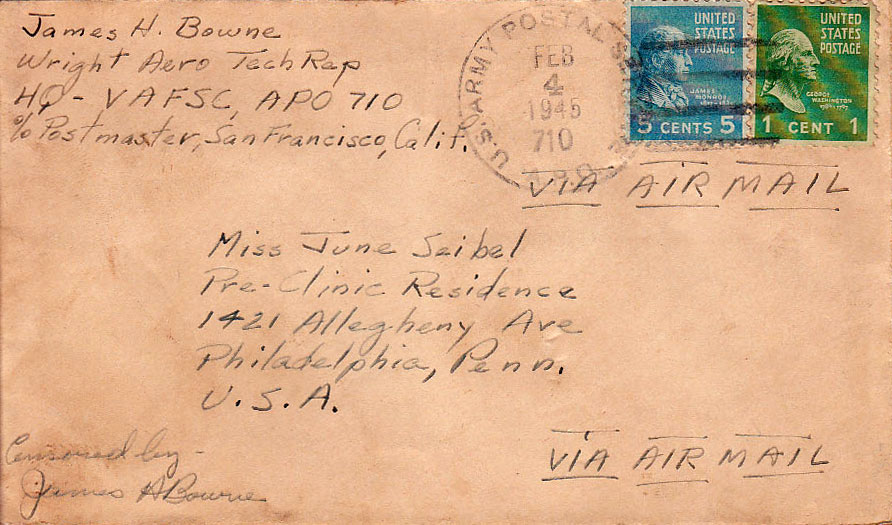 James H. Bowne
Wright Aero Tech Rep
HQ - VAFSC, APO 710
c/o Postmaster, San Francisco, Calif.
U.S. ARMY POSTAL
FEB
4
1945
710
A.P.O.
UNITED
STATES
POSTAGE
JAMES
MONROE
5 CENTS 5
UNITED
STATES
POSTAGE
GEORGE
WASHINGTON
1 CENT 1
VIA AIR MAIL
Miss June Seibel
Pre-Clinic Residence
1421 Allegheny Ave
Philadelphia, Penn.
U.S.A.
Censored by -
James H Bowne
VIA AIR MAIL